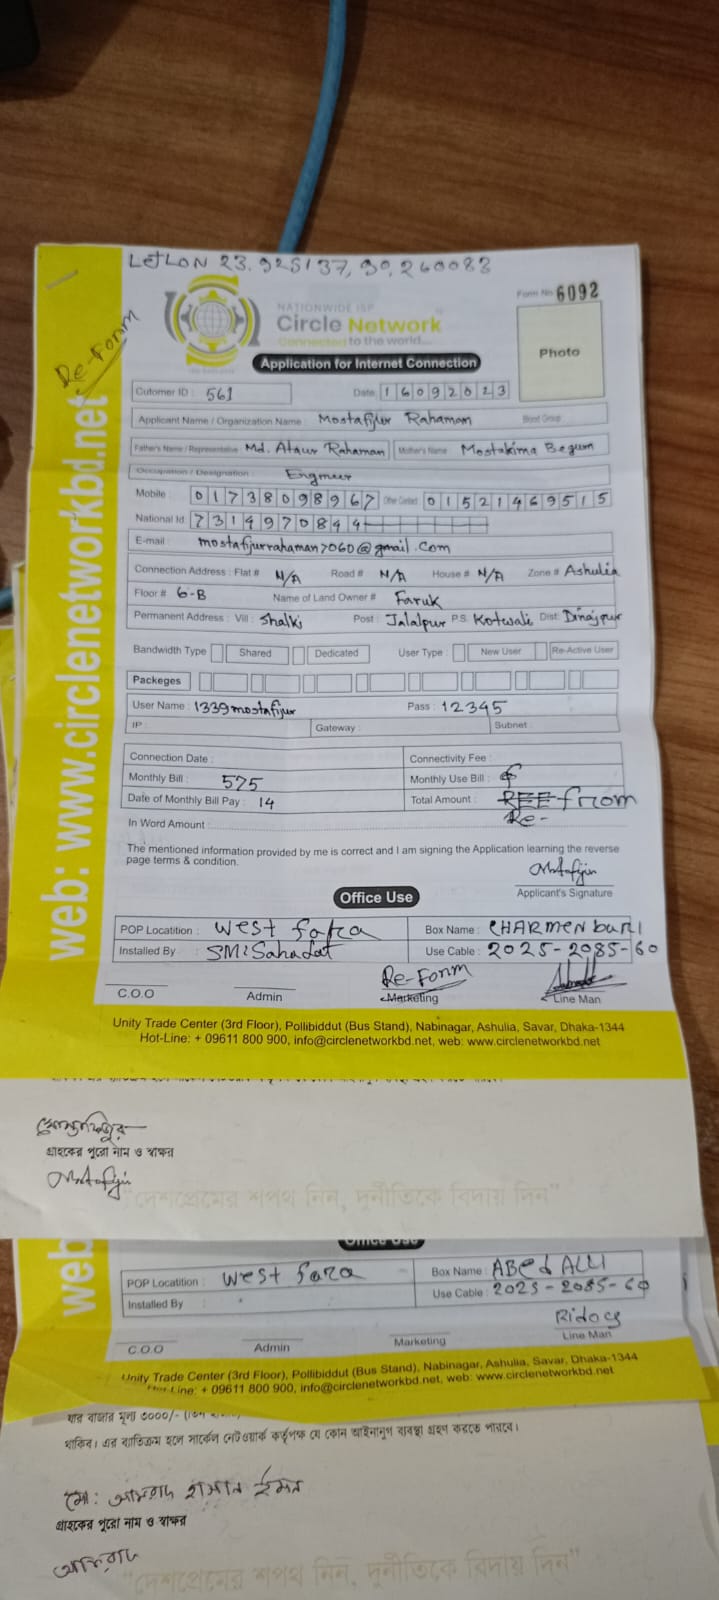 Let LON 23.925137, 90.260083
Form No 6092
NATIONWIDE ISP
Circle Network
Connected to the world...
Re-Form
Photo
Application for Internet Connection
Cutomer ID : 561 Date: 16092023
Applicant Name / Organization Name : Mostafijur Rahaman Blood Group :
Father's Name / Representative Md. Ataur Rahaman Mother's Name Mostakima Begum
Occupation / Designation :
Mobile : 01738098967 Other Contact 01521469515
National Id 7314970844
E-mail : mostafijurrahaman7060@gmail.com
Connection Address : Flat # N/A Road # N/A House # N/A Zone # Ashulia
Floor # 6-B Name of Land Owner # Faruk
Permanent Address : Vill : Shalki Post : Jalalpur P.S. Kotwali Dist: Dinajpur
Bandwidth Type Shared Dedicated User Type : New User Re-Active User
Packeges
User Name : 1339mostafijur Pass : 12345
IP : Gateway : Subnet :
Connection Date : Connectivity Fee :
Monthly Bill : 575 Monthly Use Bill :
Date of Monthly Bill Pay : 14 Total Amount : from
Re-
In Word Amount :
The mentioned information provided by me is correct and I am signing the Application learning the reverse
page terms & condition.
Applicant's Signature
Office Use
POP Locatition : west para Box Name : CHARMEN BURI
Installed By : SM: Sahadat Use Cable : 2025-2085-60
Re-Form
C.O.O Admin Marketing Line Man
Unity Trade Center (3rd Floor), Pollibiddut (Bus Stand), Nabinagar, Ashulia, Savar, Dhaka-1344
Hot-Line: + 09611 800 900, info@circlenetworkbd.net, web: www.circlenetworkbd.net
web: www.circlenetworkbd.net
মোস্তাফিজুর
গ্রাহকের পুরো নাম ও স্বাক্ষর
"দেশপ্রেমের শপথ নিন, দুর্নীতিকে বিদায় দিন"
Office Use
web
POP Locatition : west para Box Name : ABed ALLI
Installed By : Use Cable : 2025-2085-60
Ridoy
C.O.O Admin Marketing Line Man
Unity Trade Center (3rd Floor), Pollibiddut (Bus Stand), Nabinagar, Ashulia, Savar, Dhaka-1344
Hot-Line: + 09611 800 900, info@circlenetworkbd.net, web: www.circlenetworkbd.net
যার বাজার মূল্য ৩০০০/-
থাকিব। এর ব্যতিক্রম হলে সার্কেল নেটওয়ার্ক কর্তৃপক্ষ যে কোন আইনানুগ ব্যবস্থা গ্রহণ করতে পারবে।
মো: হাসান ইমন
গ্রাহকের পুরো নাম ও স্বাক্ষর
"দেশপ্রেমের শপথ নিন, দুর্নীতিকে বিদায় দিন"